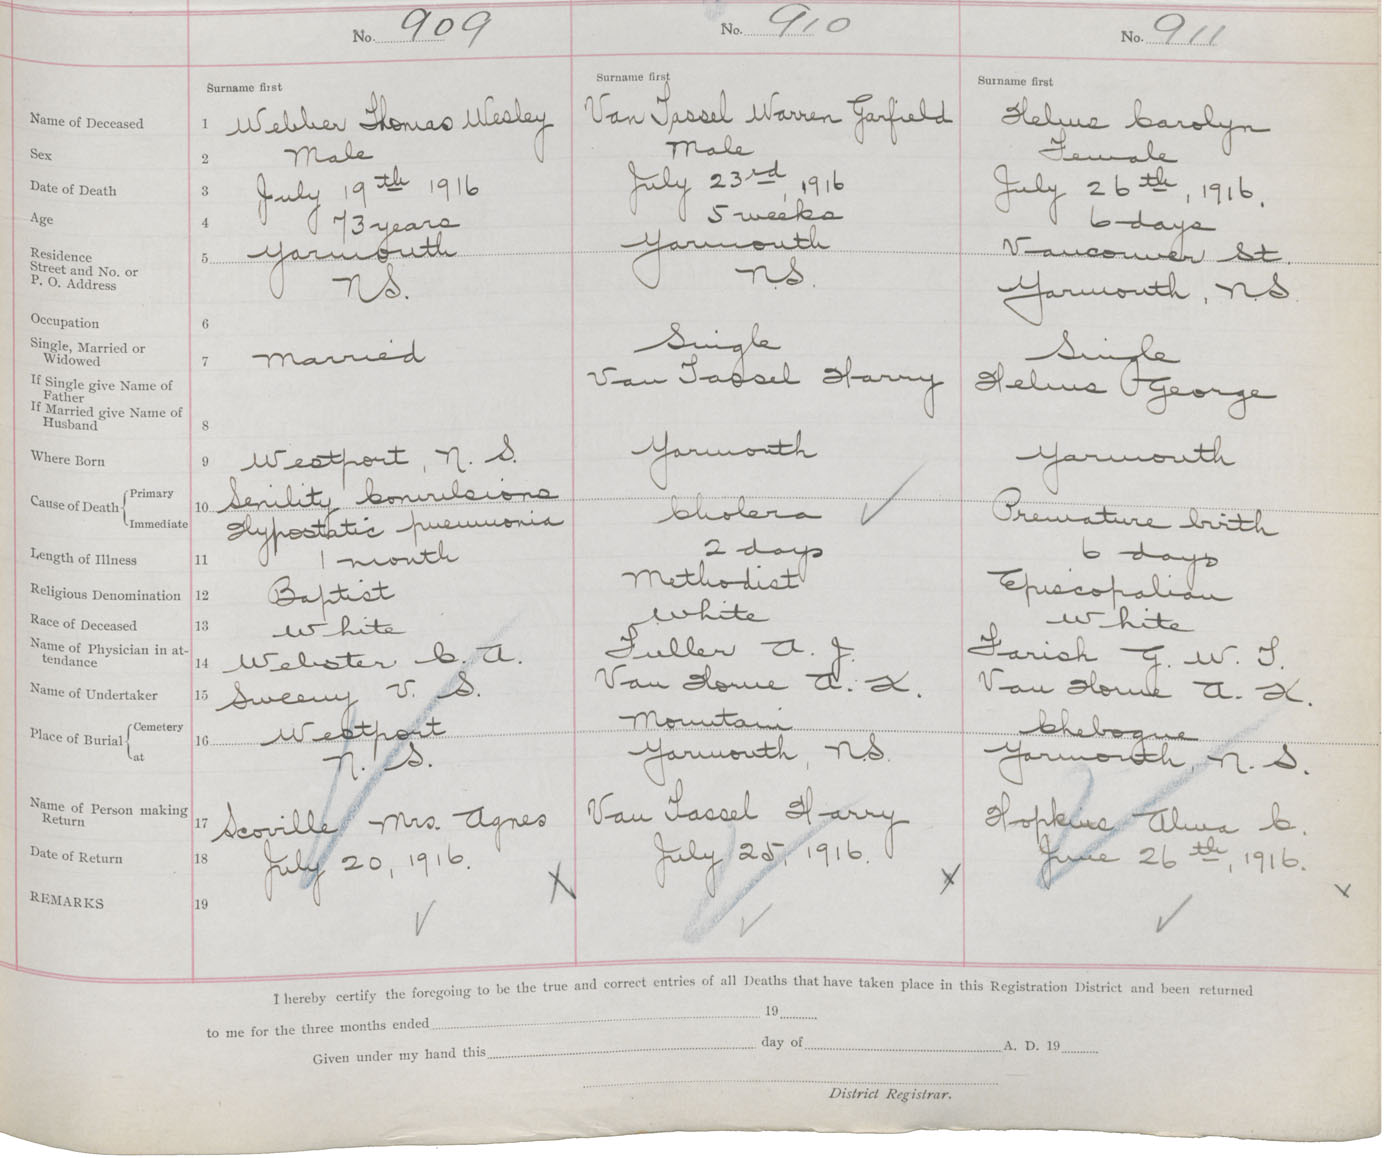 No. 909 No. 910 No. 911
Surname first Surname first Surname first
Name of Deceased 1 Webber Thomas Wesley Van Tassel Warren Garfield Helms Carolyn
Sex 2 Male Male Female
Date of Death 3 July 19th 1916 July 23rd, 1916 July 26th, 1916.
Age 4 73 years 5 weeks 6 days
Residence 5 Yarmouth Yarmouth Vancouver St.
Street and No. or
P. O. Address N.S. N.S. Yarmouth, N.S
Occupation 6
Single, Married or
Widowed 7 Married Single Single
If Single give Name of
Father Van Tassel Harry Helms George
If Married give Name of
Husband 8
Where Born 9 Westport, N. S. Yarmouth Yarmouth
Cause of Death { Primary 10 Senility Convulsions
Immediate Hypostatic pneumonia Cholera Premature birth
Length of Illness 11 1 month 2 days 6 days
Religious Denomination 12 Baptist Methodist Episcopalian
Race of Deceased 13 White White White
Name of Physician in at-
tendance 14 Webster C. A. Fuller A. J. Farish G. W. T.
Name of Undertaker 15 Sweeny V. S. Van Horne A. K. Van Horne A. K.
Place of Burial { Cemetery 16 Westport Mountain Chebogue
at N. S. Yarmouth, N.S. Yarmouth, N. S.
Name of Person making
Return 17 Scoville Mrs. Agnes Van Tassel Harry Hopkins Alma C.
Date of Return 18 July 20, 1916. July 25, 1916. June 26th, 1916.
REMARKS 19
I hereby certify the foregoing to be the true and correct entries of all Deaths that have taken place in this Registration District and been returned
to me for the three months ended 19
Given under my hand this day of A. D. 19
District Registrar.